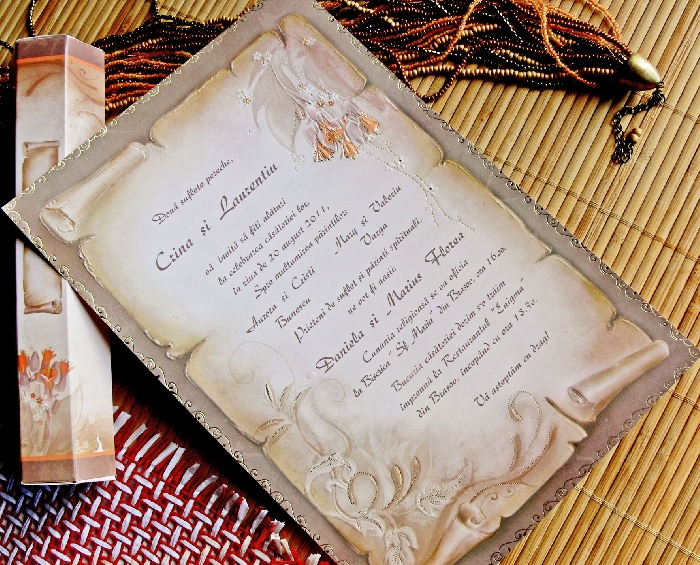 Două suflete pereche,
Crina si Laurentiu
vă invită să fiți alături
la celebrarea căsătoriei lor,
în ziua de 20 august 2011.
Spre multumirea părinților:
Aurora si Cristi Maty si Valeriu
Bunoreu Varga
Prieteni de suflet si părinti spirituali,
ne vor fi nasii:
Daniela si Marius Florea
Cununia religioasă se va oficia
la Biserica "Sf. Maria" din Brasov, ora 16.30.
Bucuria căsătoriei dorim s-o trăim
împreună la Restaurantul "Enigma"
din Brasov, începând cu ora 18.30.
Vă asteptăm cu drag!